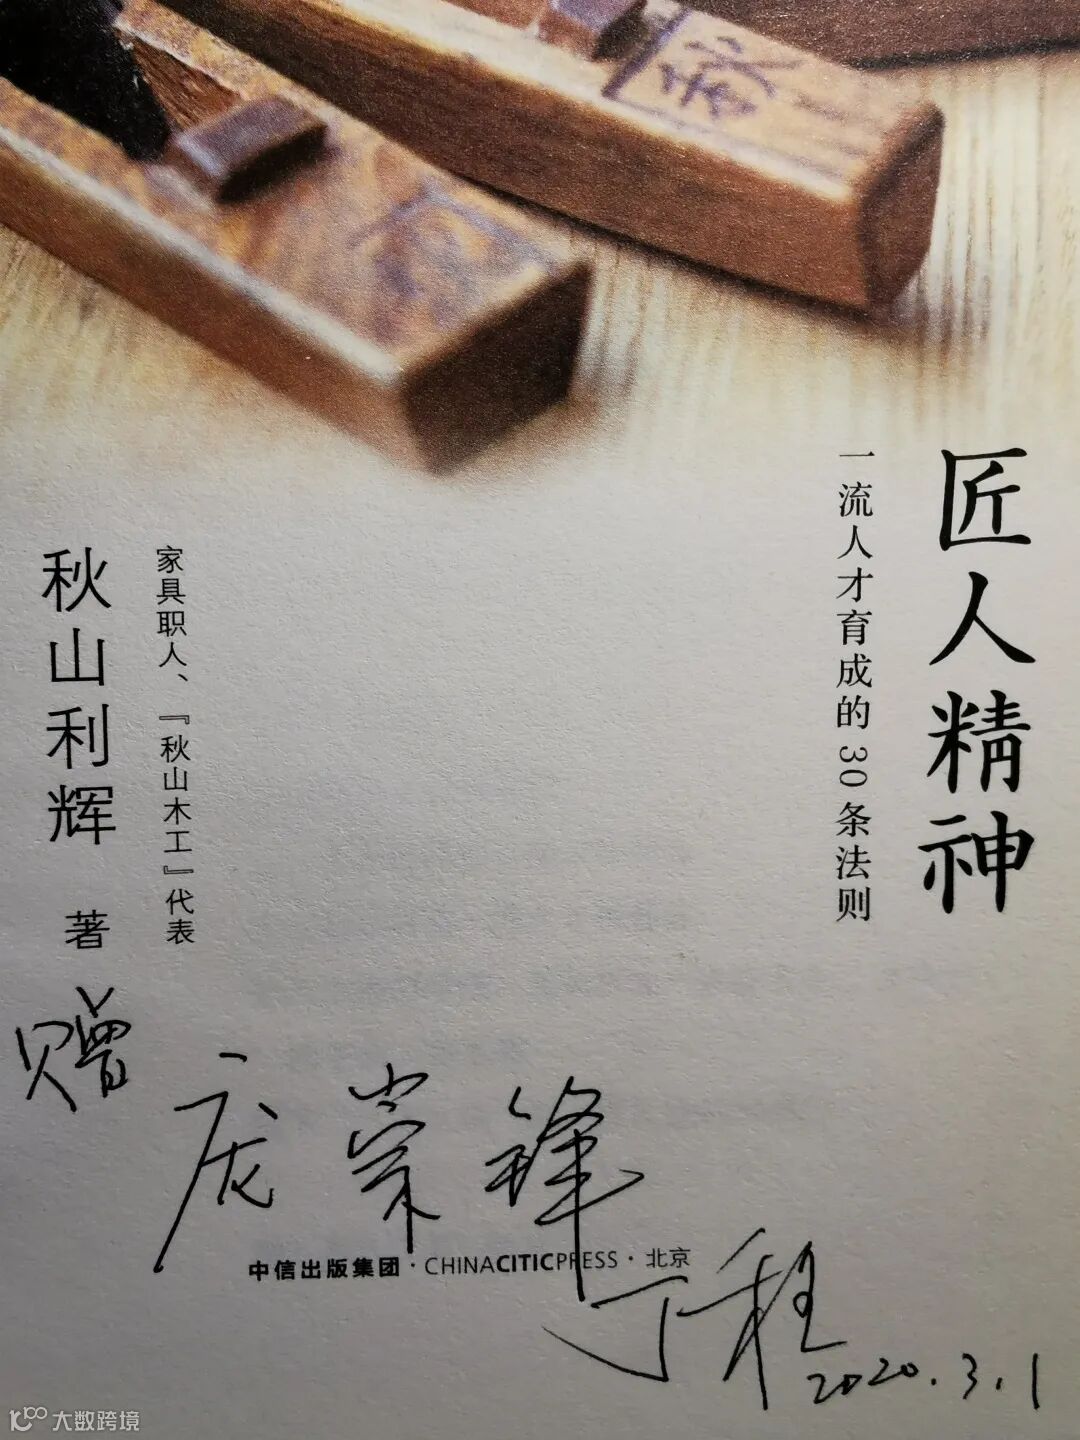 匠人精神
一流人才育成的30条法则
家具职人、『秋山木工』代表
秋山利辉 著
赠
庞崇锋
中信出版集团·CHINACITICPRESS·北京
丁程
2020.3.1
大数跨境